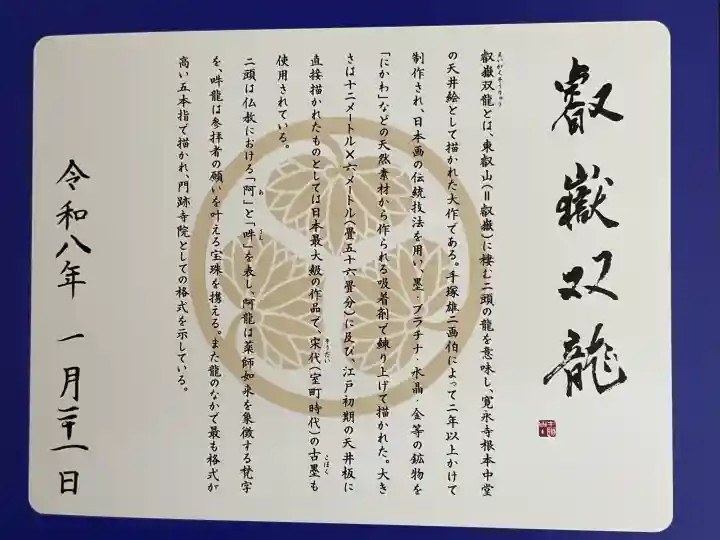 叡嶽双龍
叡嶽双龍とは、東叡山(=叡嶽)に棲む二頭の龍を意味し、寛永寺根本中堂
の天井絵として描かれた大作である。手塚雄二画伯によって二年以上かけて
制作され、日本画の伝統技法を用い、墨・プラチナ・水晶・金等の鉱物を
「にかわ」などの天然素材から作られる吸着剤で練り上げて描かれた。大き
さは十二メートル×六メートル(畳五十六畳分)に及び、江戸初期の天井板に
直接描かれたものとしては日本最大級の作品で、宋代(室町時代)の古墨も
使用されている。
二頭は仏教における「阿」と「吽」を表し、阿龍は薬師如来を象徴する梵字
を、吽龍は参拝者の願いを叶える宝珠を携える。また龍のなかで最も格式が
高い五本指で描かれ、門跡寺院としての格式を示している。
令和八年 一月二十一日